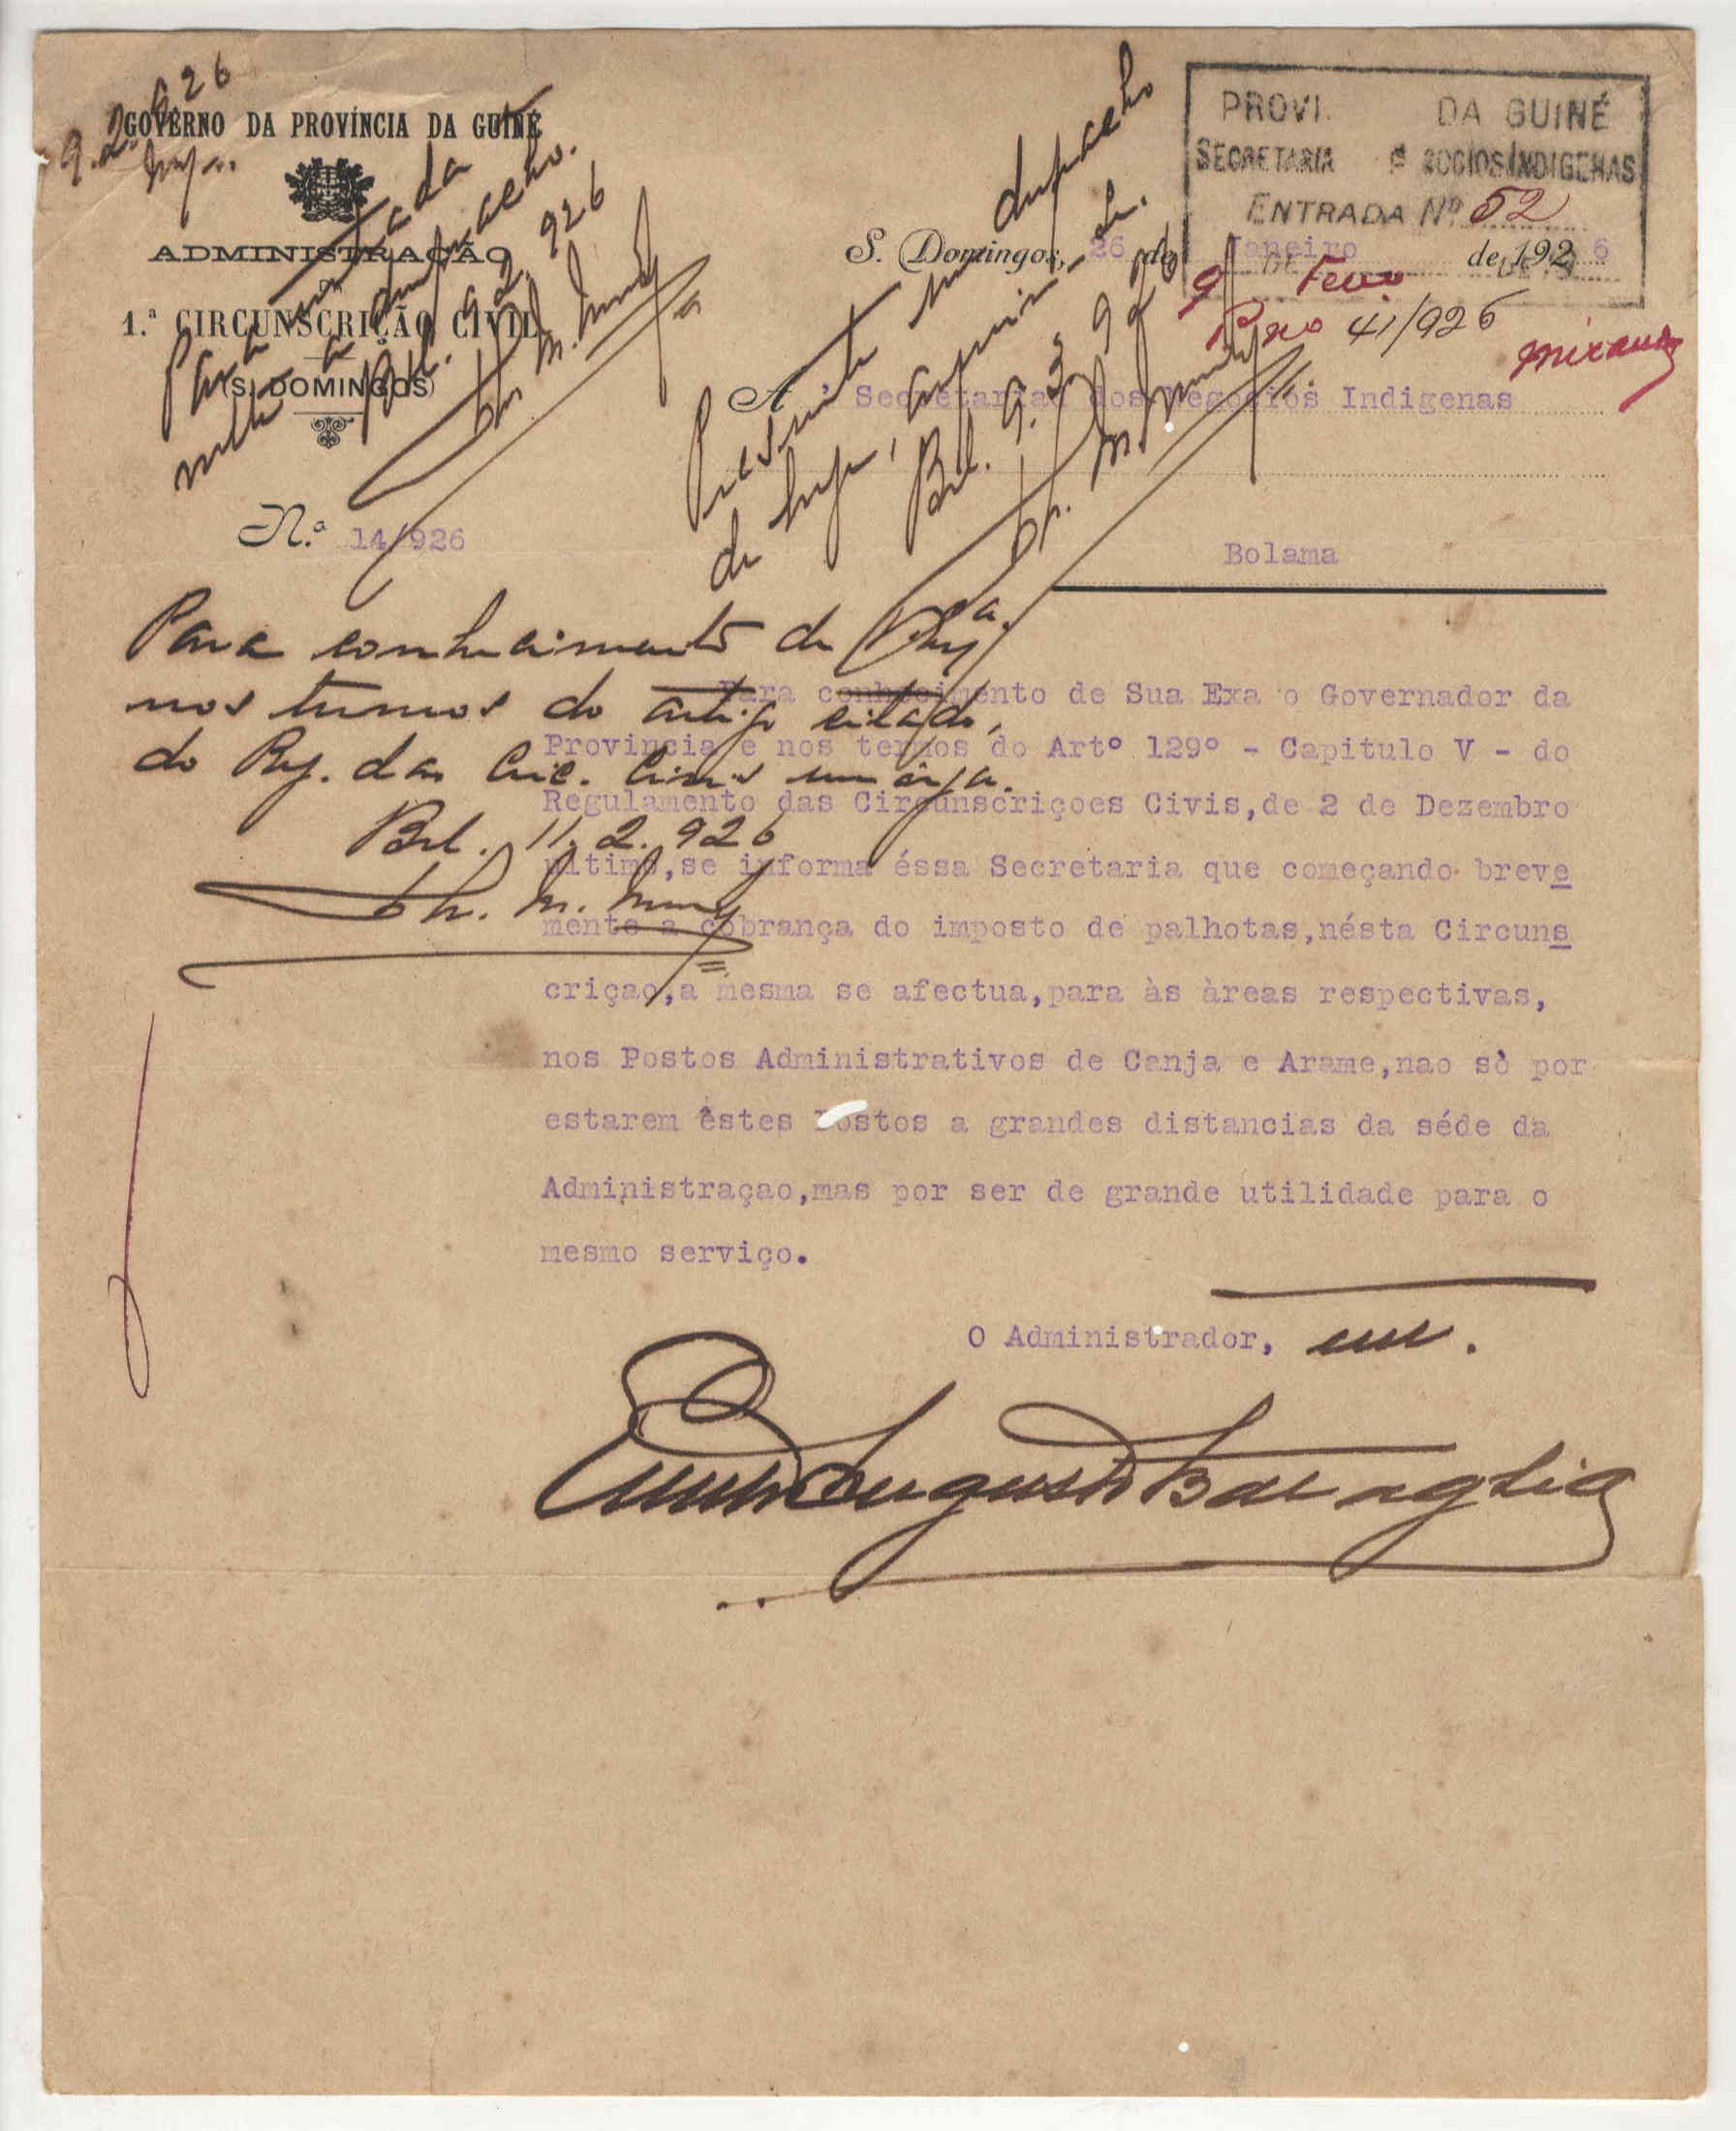 9.2.926
GOVÊRNO DA PROVÍNCIA DA GUINÉ
ADMINISTRAÇÃO
DA
1.ª CIRCUNSCRIÇÃO CIVIL
(S. DOMINGOS)
N.º 14/926
a despacho.
Bol. 9.2.926
PROVI. DA GUINÉ
SECRETARIA GOCIOS INDIGENAS
ENTRADA Nº 52
9 DE Fevº DE 19
Pº nº 41/926
S. Domingos, 26 de Janeiro de 1926
Presente ao despacho
de hoje, arquive-se.
Bol. 9.3.926
A' Secretaria dos Negocios Indigenas
Bolama
Para conhecimento de
nos termos do artigo citado,
do Reg. das Circ. Civis
Bol. 11.2.926
Para conhecimento de Sua Exa o Governador da
Provincia e nos termos do Artº 129º - Capitulo V - do
Regulamento das Circunscriçoes Civis,de 2 de Dezembro
ultimo,se informa éssa Secretaria que começando breve
mente a cobrança do imposto de palhotas,nésta Circuns
criçao,a mesma se afectua,para às àreas respectivas,
nos Postos Administrativos de Canja e Arame,nao sò por
estarem êstes Postos a grandes distancias da séde da
Administraçao,mas por ser de grande utilidade para o
mesmo serviço.
O Administrador,